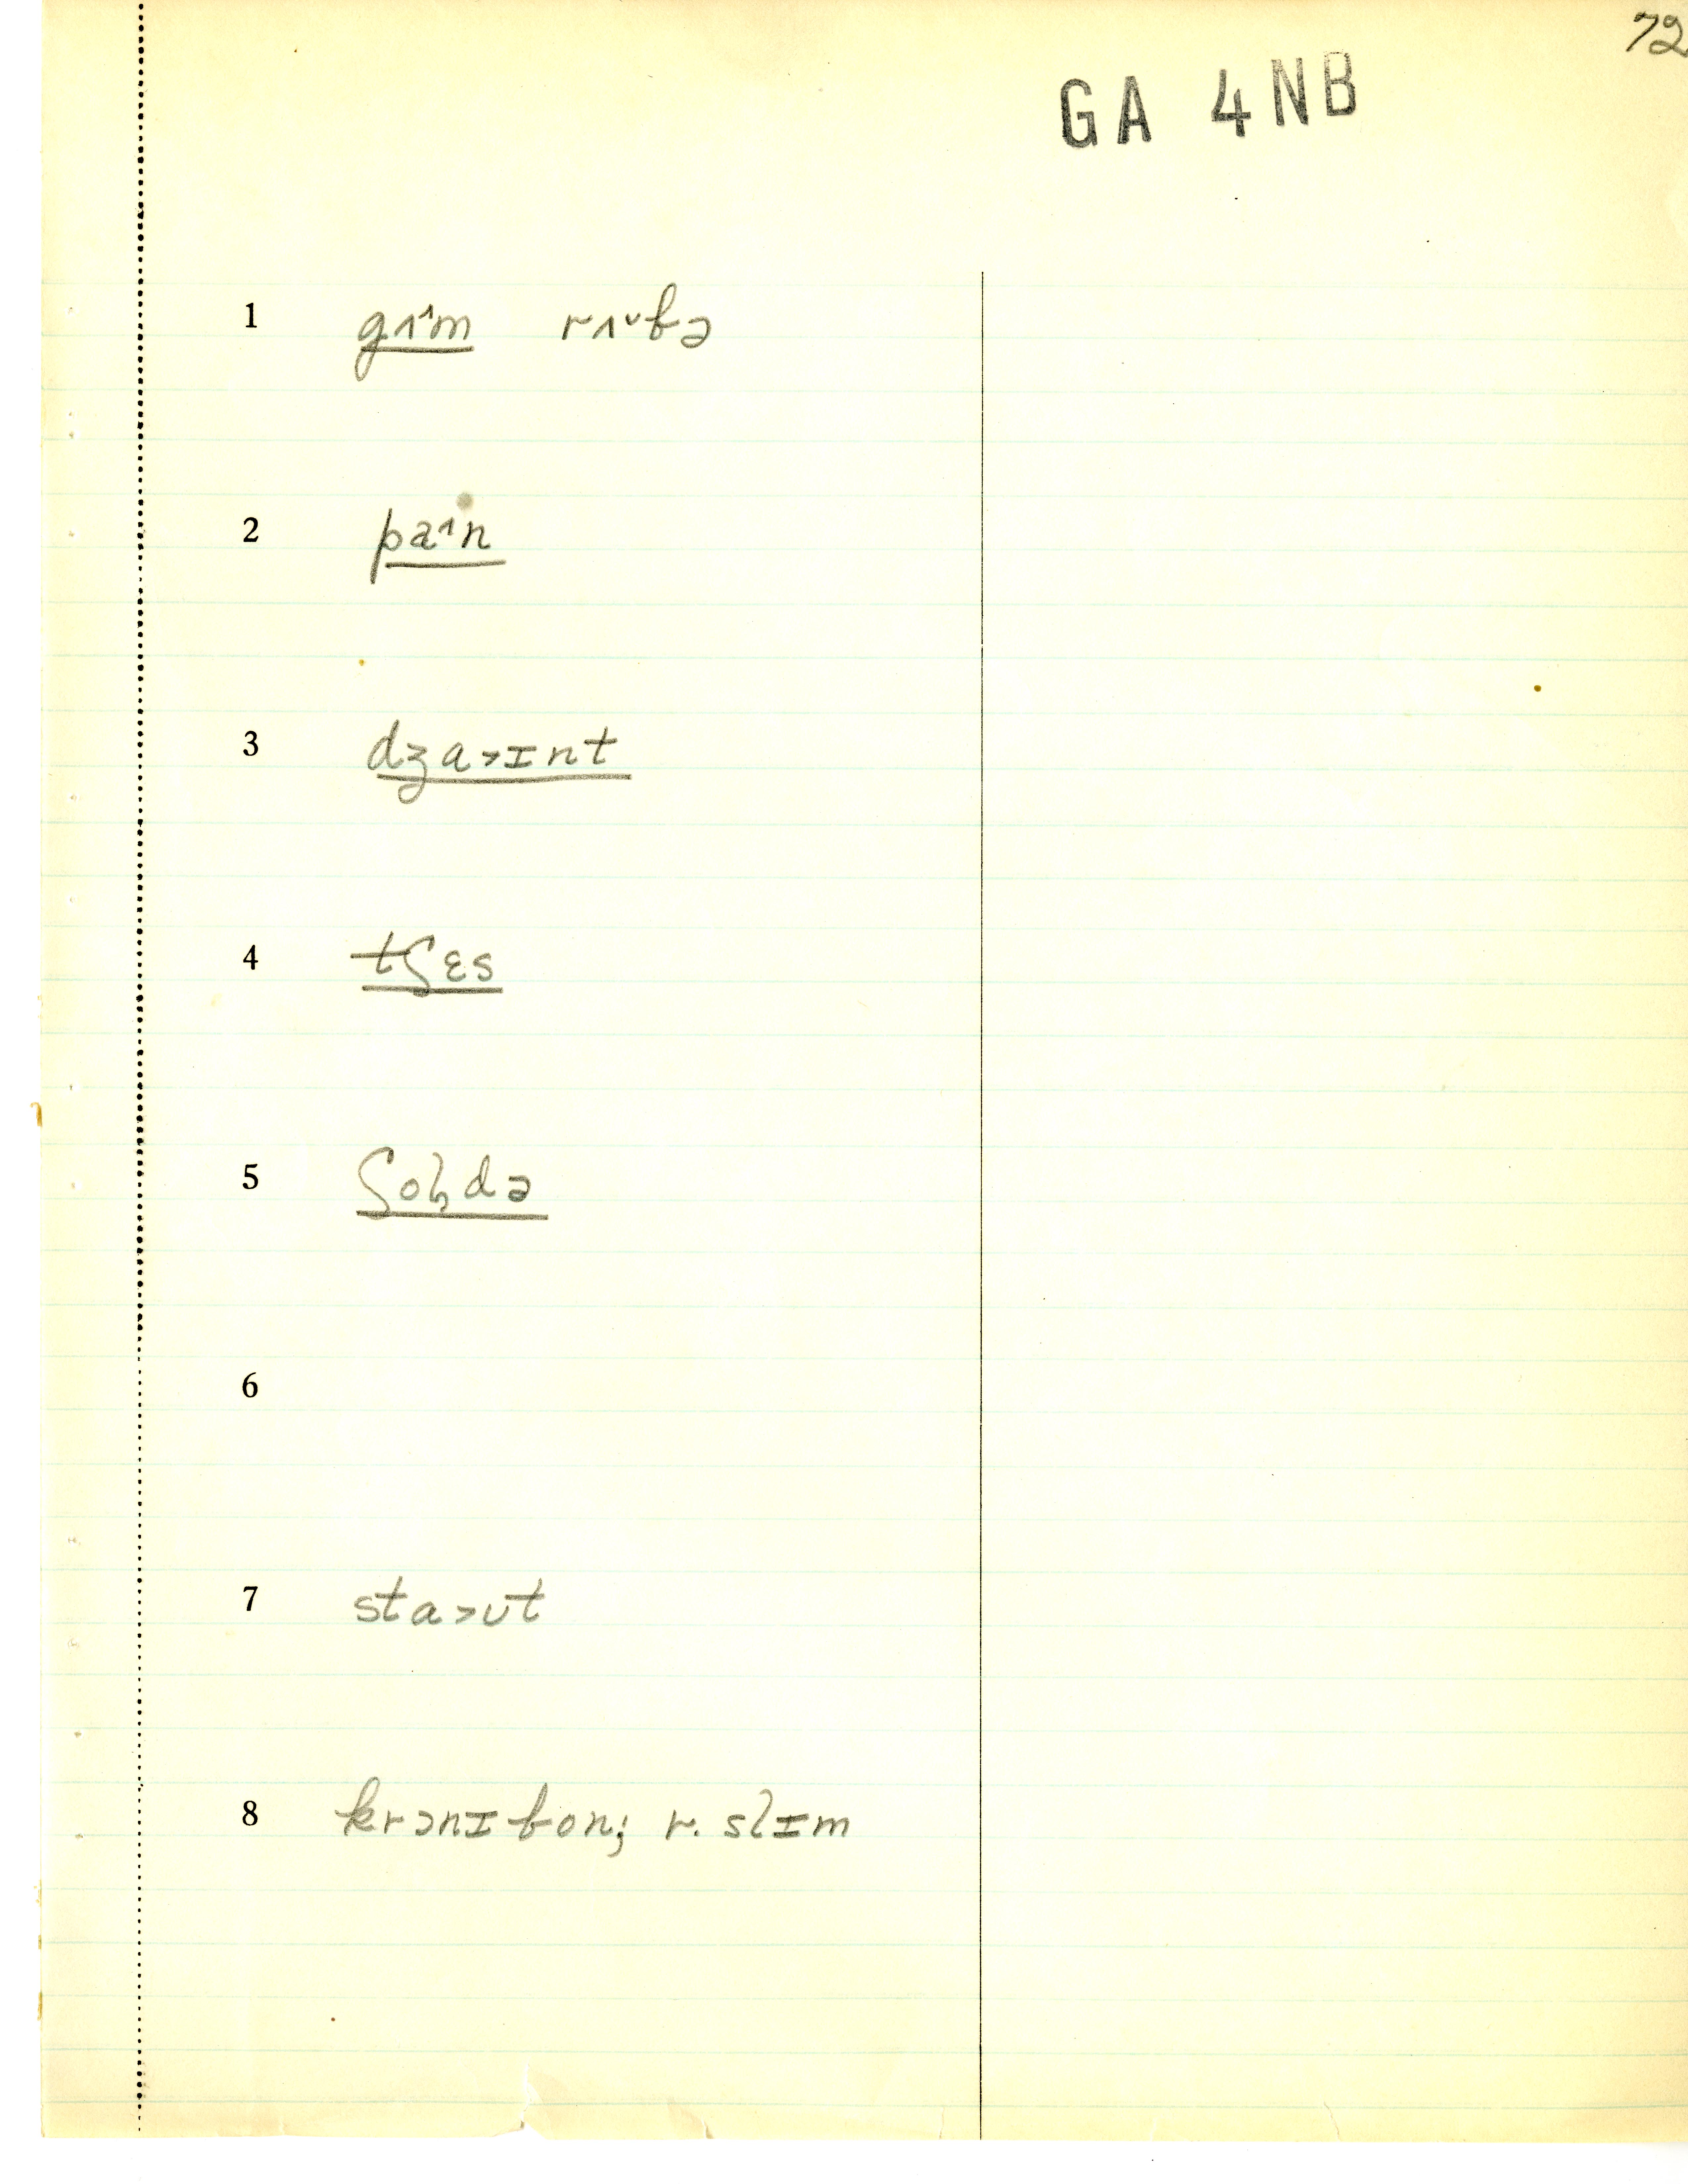 72
GA 4NB
1 gʌ˄m rʌ˅bə
2 pa˄n
3 dʒa˃ɪnt
4 tʃɛs
5 ʃoldə
6
7 sta˃ʊt
8 krɔnɪ bon; r. slɪm